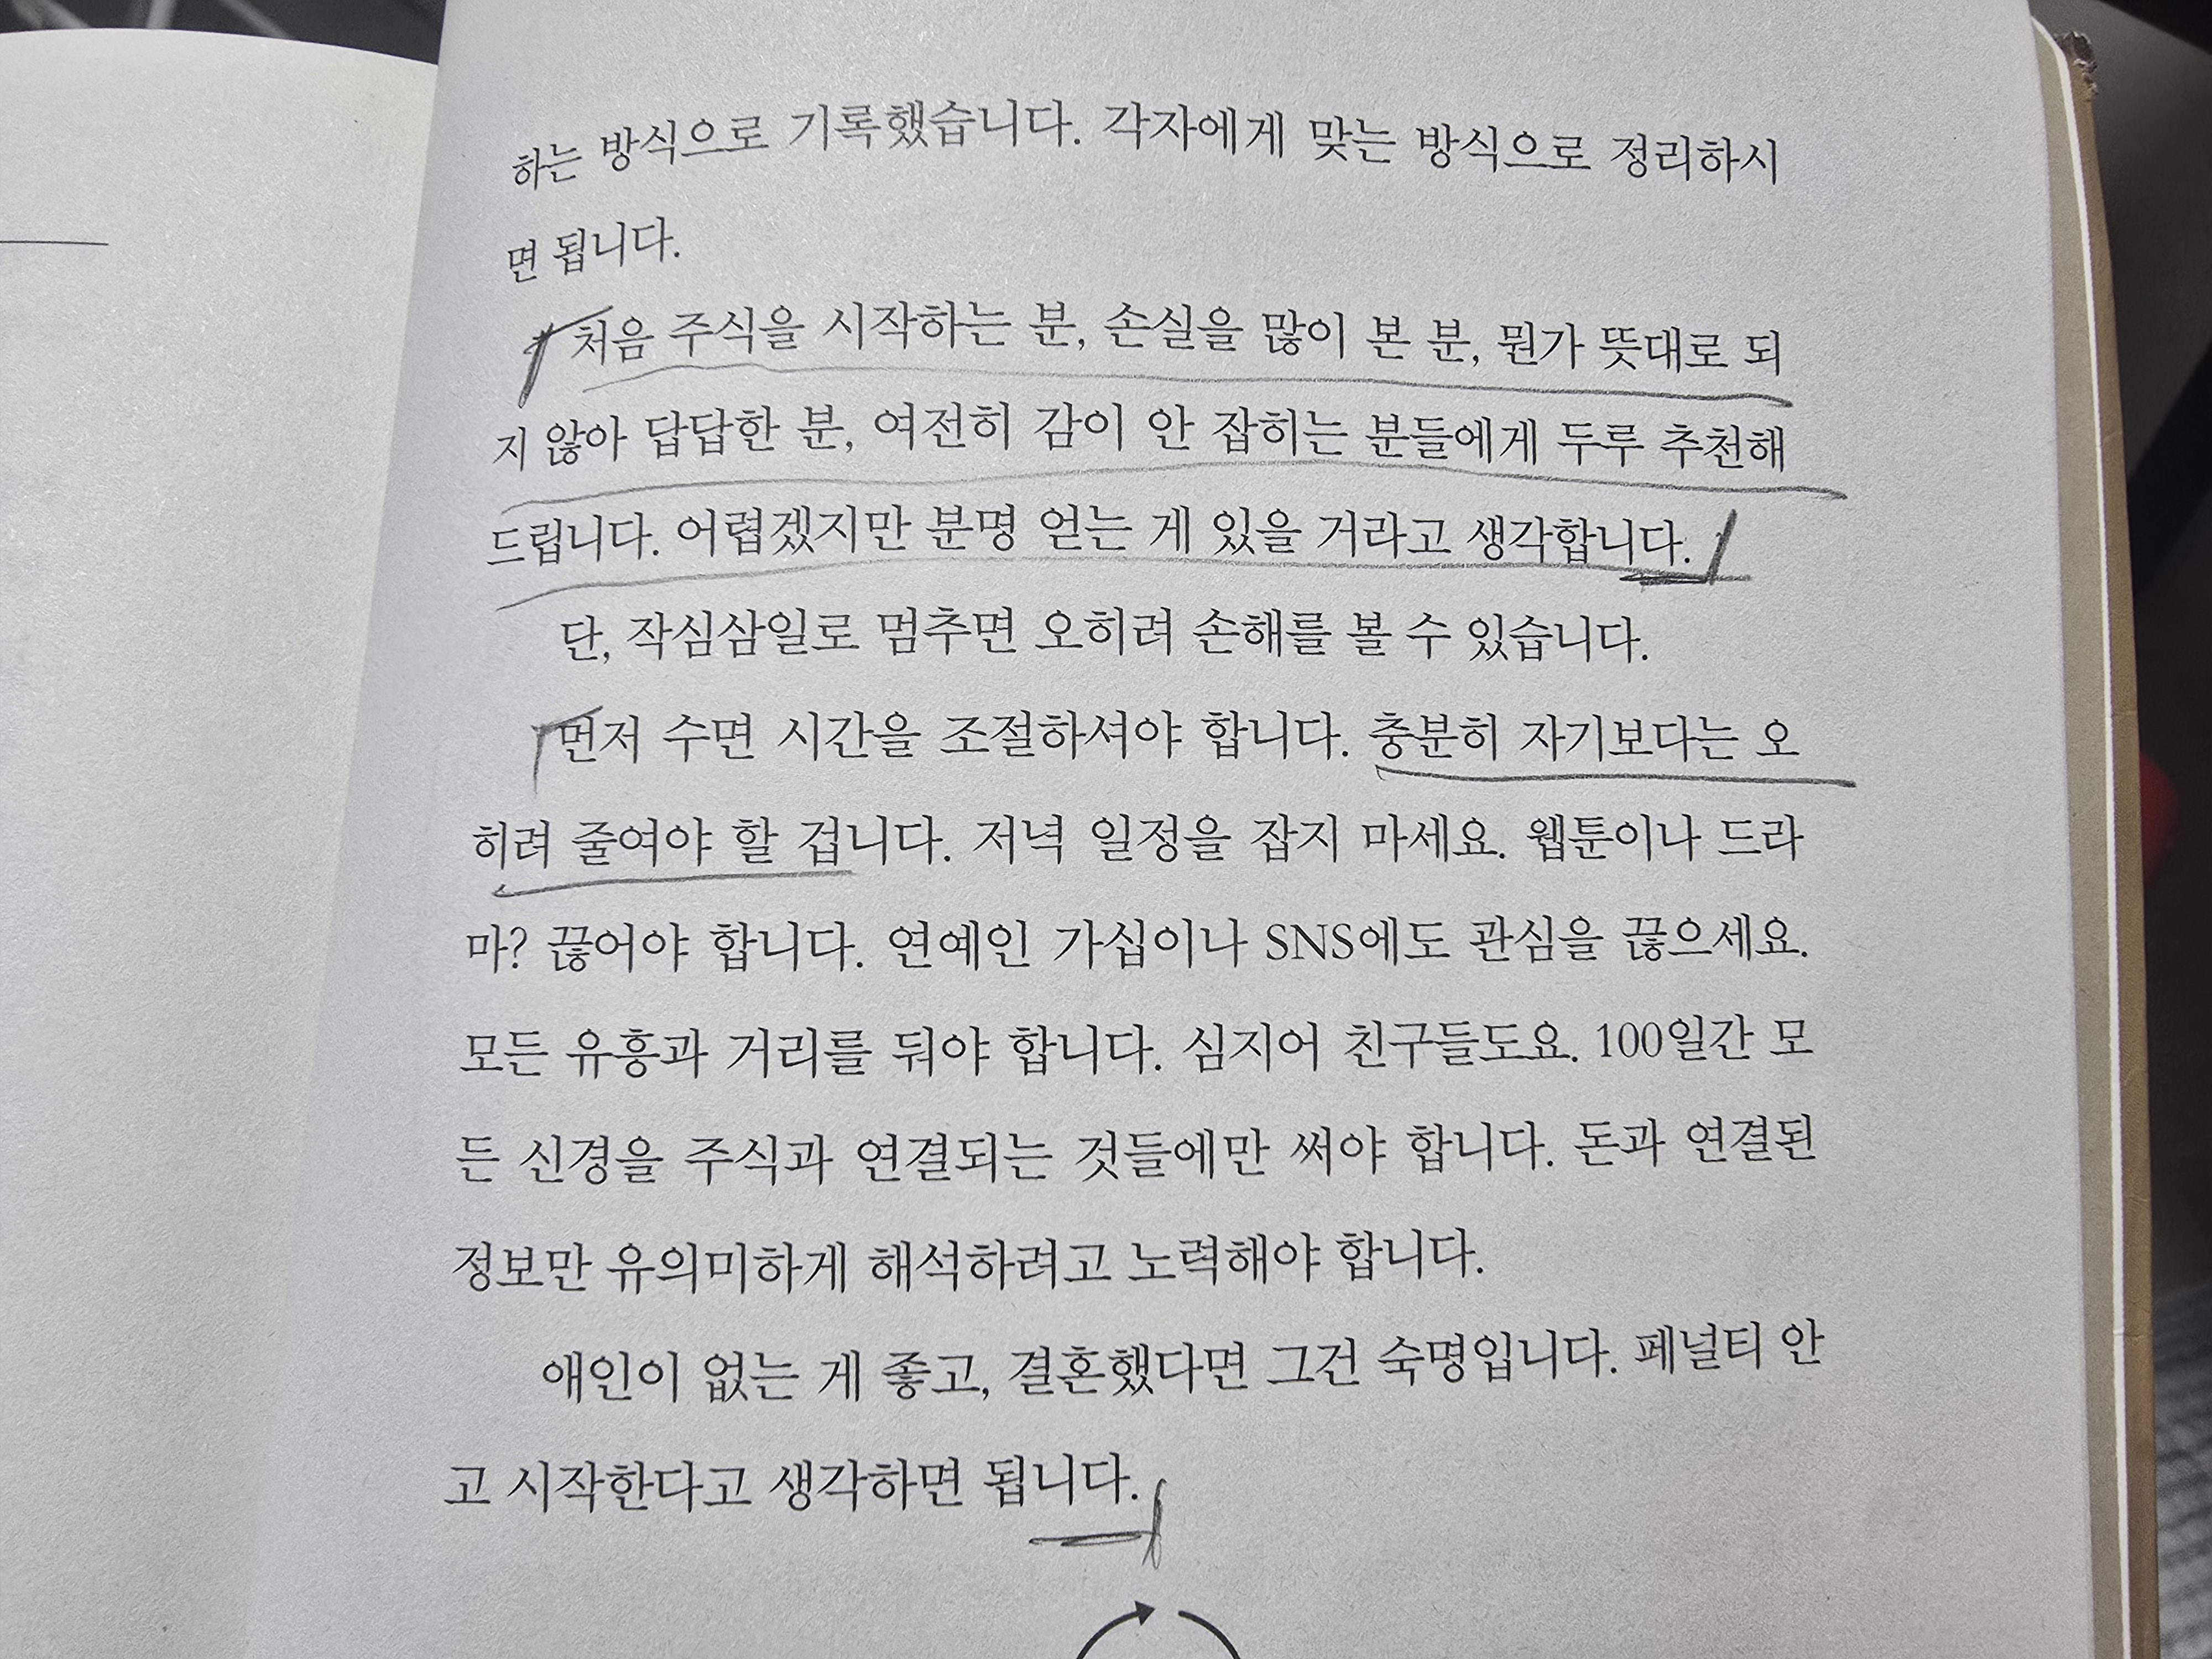 하는 방식으로 기록했습니다. 각자에게 맞는 방식으로 정리하시
면 됩니다.
처음 주식을 시작하는 분, 손실을 많이 본 분, 뭔가 뜻대로 되
지 않아 답답한 분, 여전히 감이 안 잡히는 분들에게 두루 추천해
드립니다. 어렵겠지만 분명 얻는 게 있을 거라고 생각합니다.
단, 작심삼일로 멈추면 오히려 손해를 볼 수 있습니다.
먼저 수면 시간을 조절하셔야 합니다. 충분히 자기보다는 오
히려 줄여야 할 겁니다. 저녁 일정을 잡지 마세요. 웹툰이나 드라
마? 끊어야 합니다. 연예인 가십이나 SNS에도 관심을 끊으세요.
모든 유흥과 거리를 둬야 합니다. 심지어 친구들도요. 100일간 모
든 신경을 주식과 연결되는 것들에만 써야 합니다. 돈과 연결된
정보만 유의미하게 해석하려고 노력해야 합니다.
애인이 없는 게 좋고, 결혼했다면 그건 숙명입니다. 페널티 안
고 시작한다고 생각하면 됩니다.